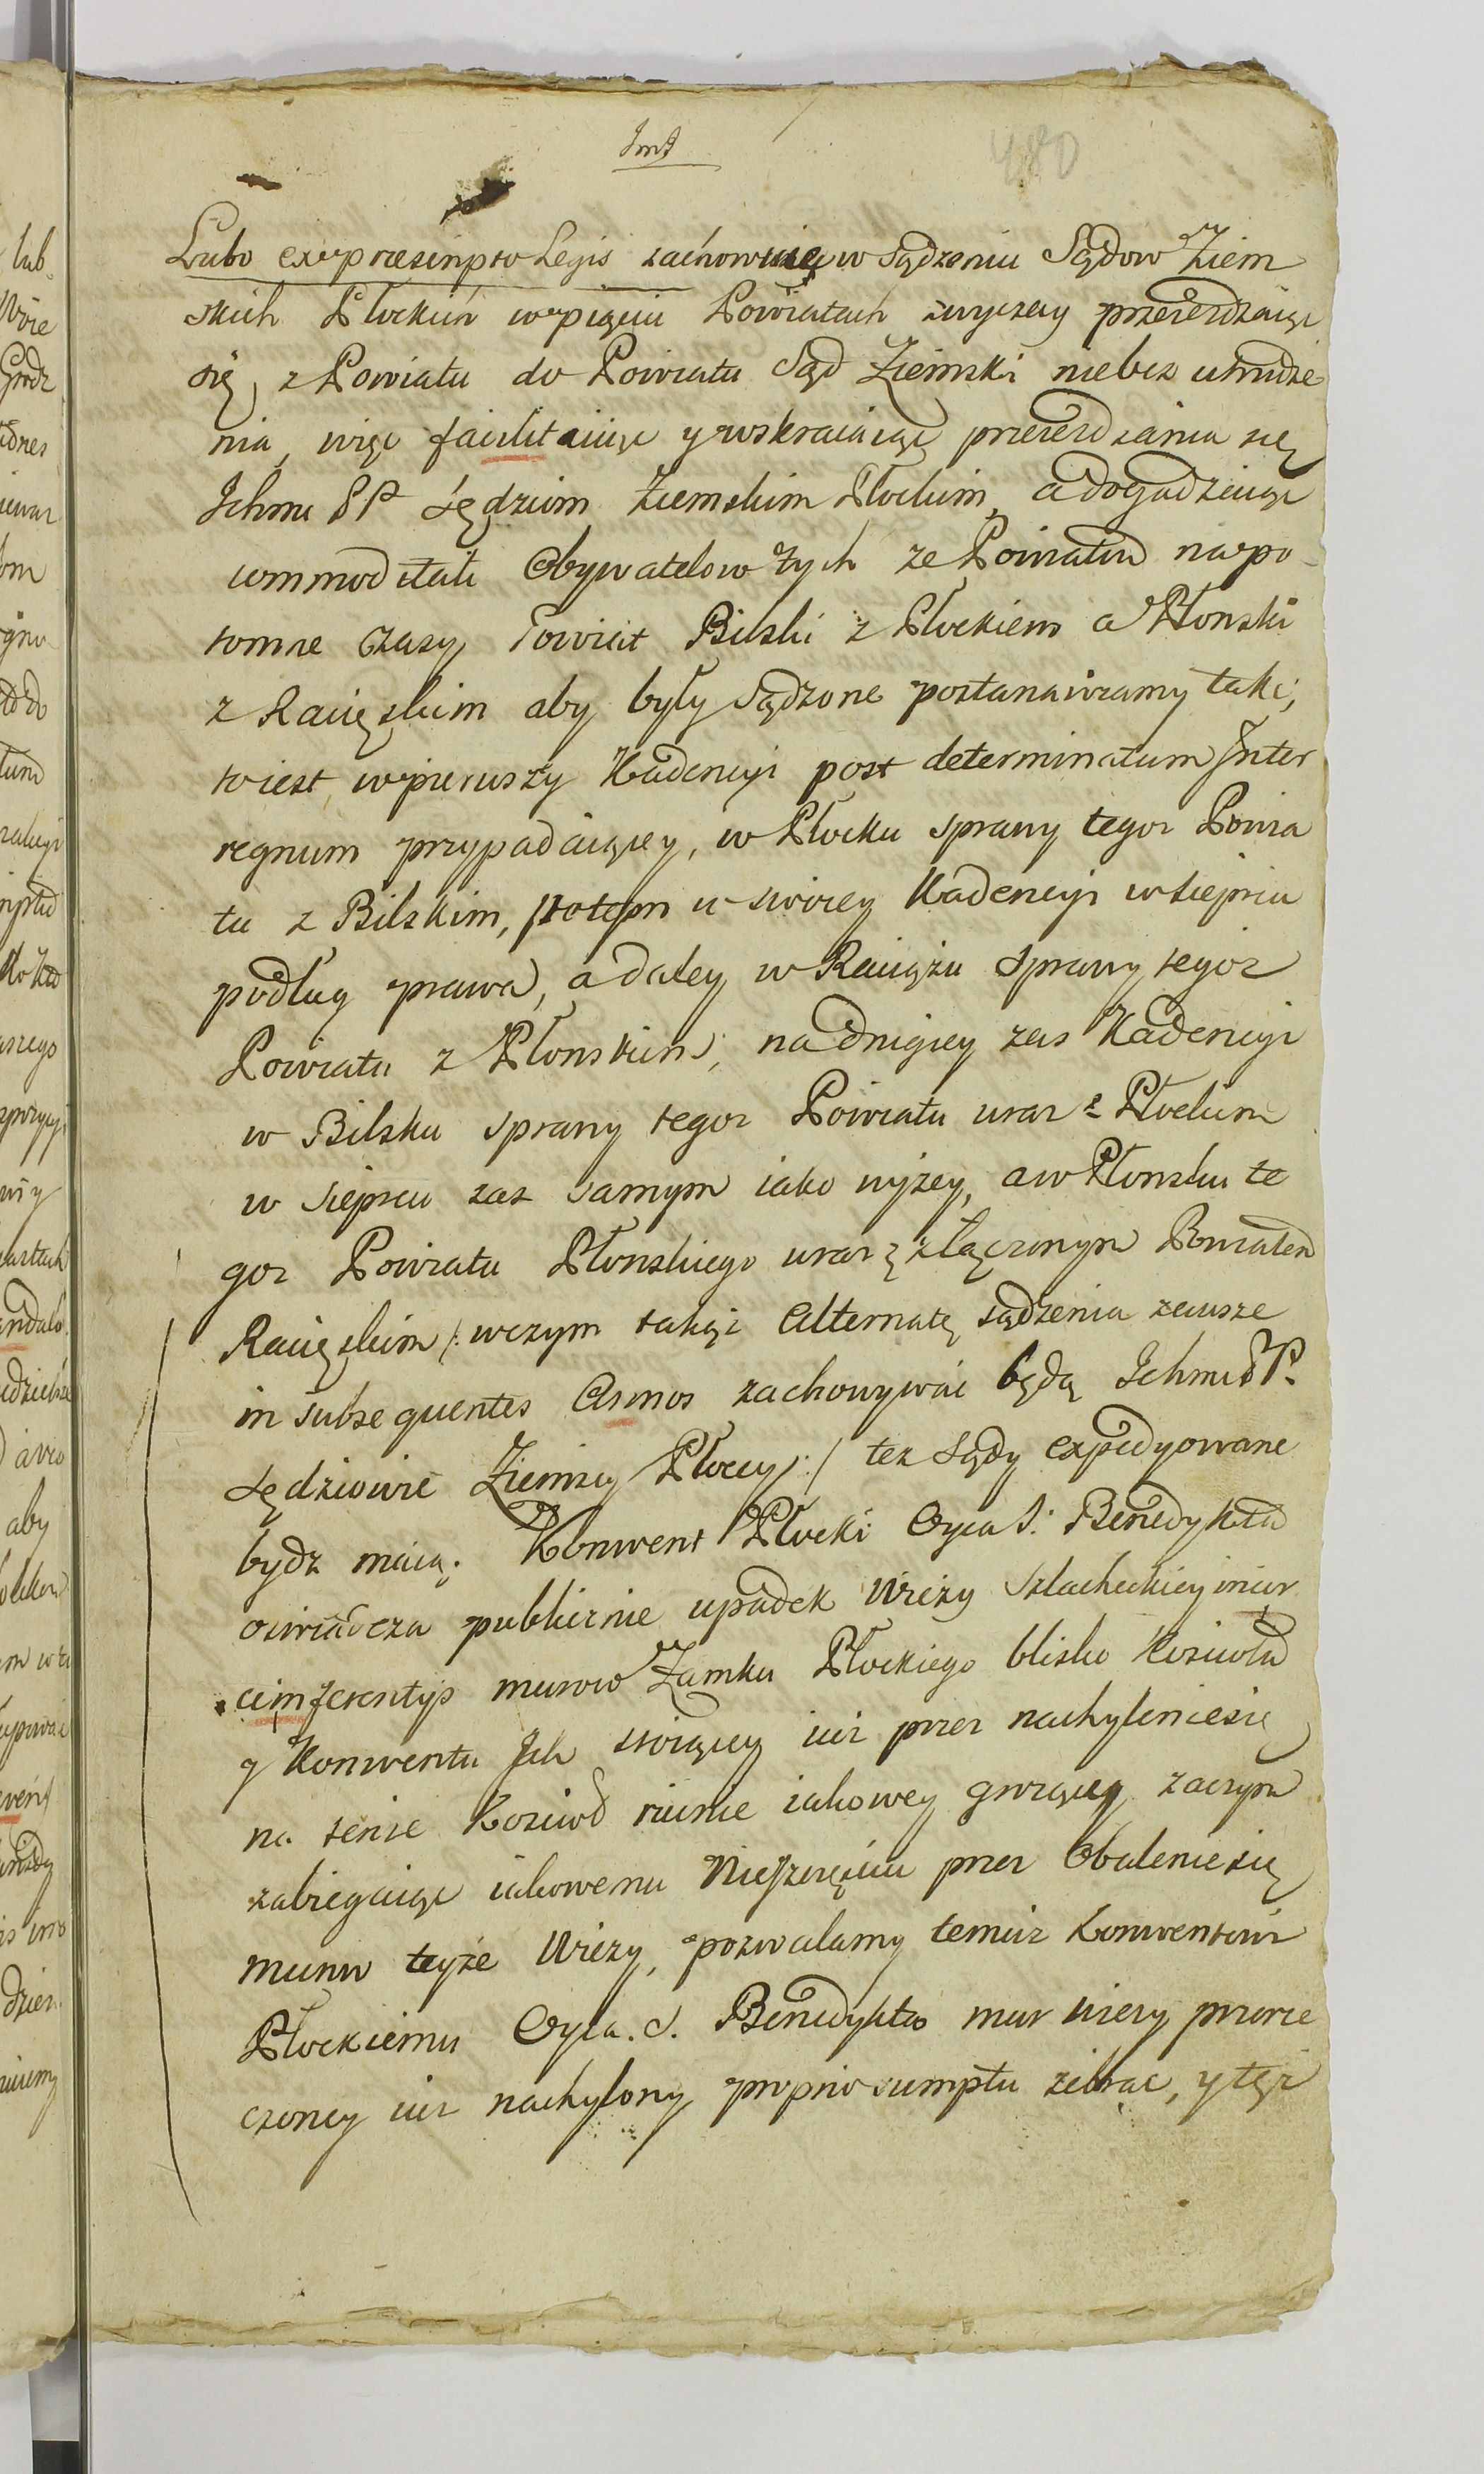 480
Lubo ex præscripto Legis zachowuię w Sądzeniu Sądow Ziem
skich Płockich w pięciu Powiatach zwyczay przeiezdzaiąc
się z Powiatu do Powiatu Sąd Ziemski niebez utrudze
nia, więc facilitaiąc y wskracaiąc przeiezdzania się
Ichmć PP Sędziom Ziemskim Płockim, a dogadzaiąc
commoditati Obywatelow tych ze Powiatow na po-
tomne czasy, Powiat Bilski z Płockiem a Płonski
z Raciązkim aby były Sądzone postanawiamy tak;
to iest, w pierwszy Kadencyi post determinatum Inter
regnum przypadaiącey, w Płocku sprawy tegoz Powia
tu z Bilskim, potym w swoiey Kadencyi w Siepcu
podług prawa, a daley w Raciążu Sprawy tegoz
Powiatu z Płonskim; na drugiey zas Kadencyi
w Bilsku sprawy tegoz Powiatu wraz z Płockim
w Siepcu zas samym iako wyżey, a w Płonsku te
goz Powiatu Płonskiego wraz złączonym Powiatem
Raciązkim /: w czym takąż Alternatę sądzenia zawsze
in subsequentes Annos zachowywać będą Ichmć PP.
Sędziowie Ziemscy Płoccy :/ tez Sądy expedyowane
bydz maią. Konwent Płocki Oyca S: Benedykta
oswiadcza publicznie upadek Wieży Szlacheckiey in cir
cumferentijs murow Zamku Płockiego blisko Kosciola
y Konwentu Ich stoiącey iuż przez nachylenie się
na tenże Kosciol ruinie iakowey grożącey zaczym
zabiegaiąc iakowemu Nieszczęściu przez Obalenie się
muru teyże Wieży, pozwalamy temuz Konwentowi
Płockiemu Oyca. S. Benedykta mur wiezy przerze
czoney iuz nachylony proprio sumptu zebrac, y tęż